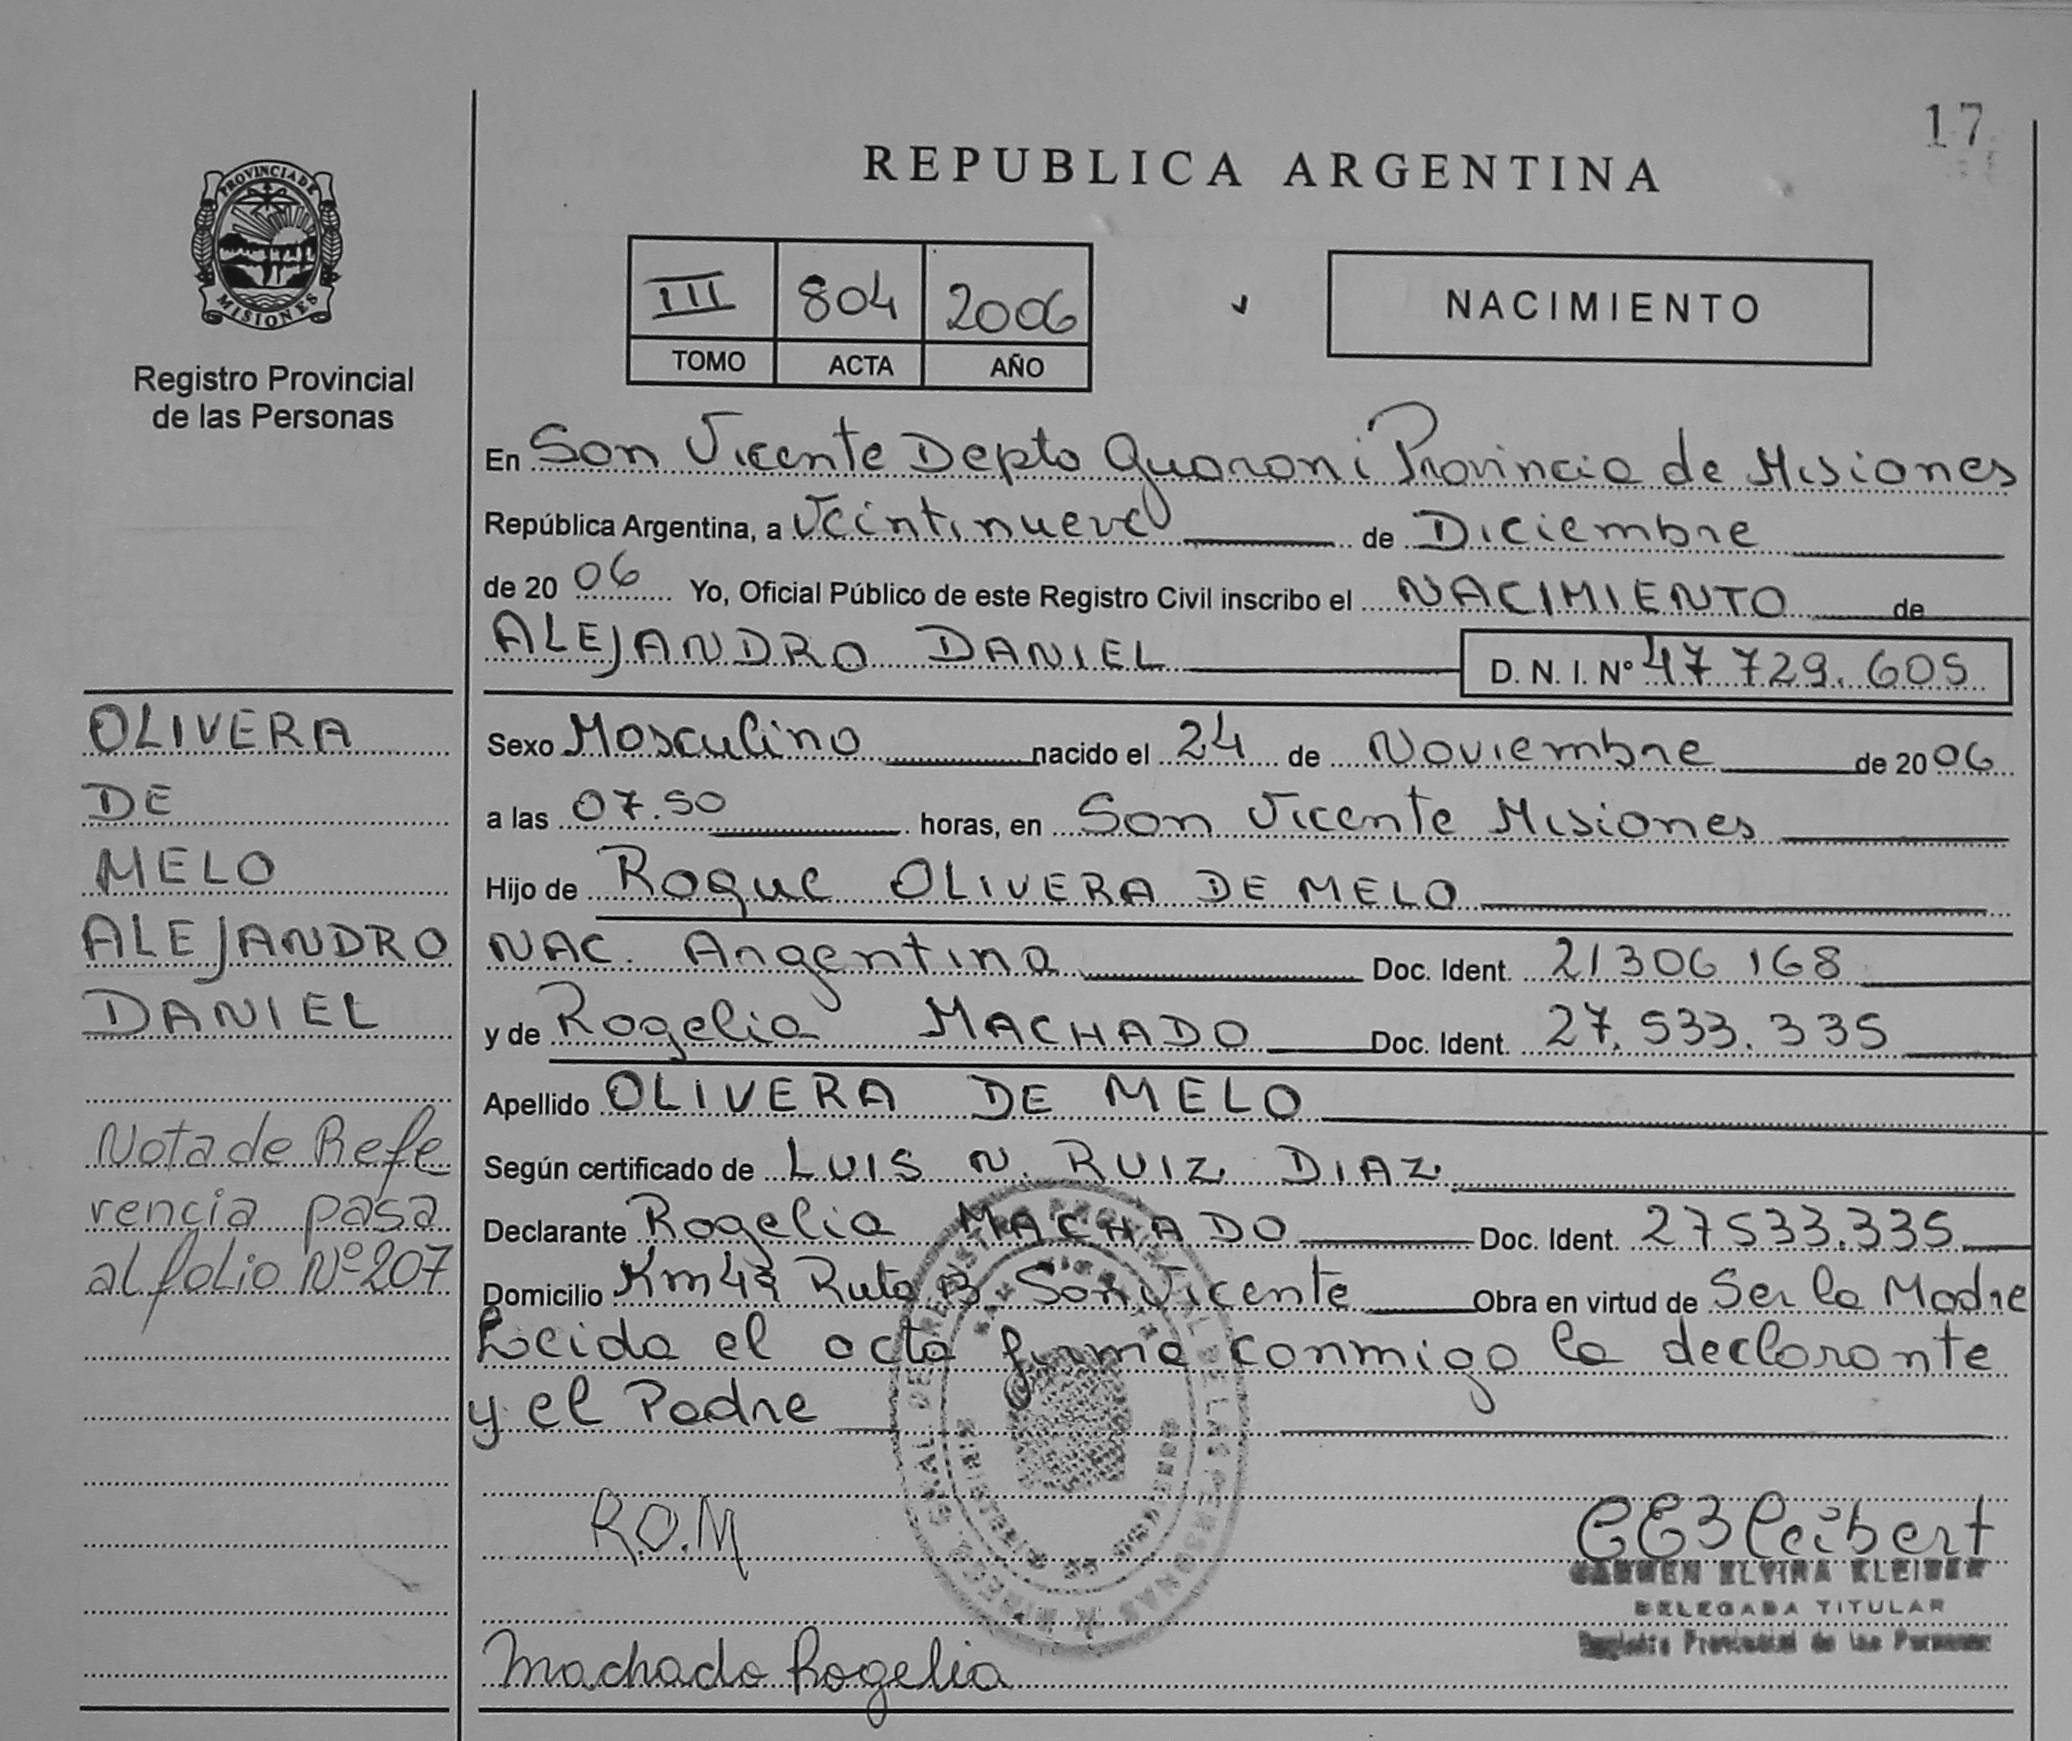 17
REPUBLICA ARGENTINA
PROVINCIA DE
MISIONES
Registro Provincial
de las Personas
III 804 2006
TOMO ACTA AÑO
NACIMIENTO
En San Vicente Depto Guarani Provincia de Misiones
República Argentina, a Veintinueve de Diciembre
de 20 06 Yo, Oficial Público de este Registro Civil inscribo el NACIMIENTO de
ALEJANDRO DANIEL D. N. I. Nº 47 729. 605
Sexo Masculino nacido el 24 de Noviembre de 20 06
a las 07.50 horas, en San Vicente Misiones
Hijo de Roque OLIVERA DE MELO
NAC. Argentina Doc. Ident. 21306 168
y de Rogelia MACHADO Doc. Ident. 27. 533. 335
Apellido OLIVERA DE MELO
Según certificado de LUIS N. RUIZ DIAZ
Declarante Rogelia MACHADO Doc. Ident. 27533.335
Domicilio Km 43 Ruta 13 San Vicente Obra en virtud de Ser la Madre
Leida el acta firma conmigo la declarante
y el Padre
OLIVERA
DE
MELO
ALEJANDRO
DANIEL
Nota de Refe
rencia pasa
al folio Nº 207
R.O.M
Machado Rogelia
CARMEN ELVIRA
DELEGADA TITULAR
Registro Provincial de las Personas